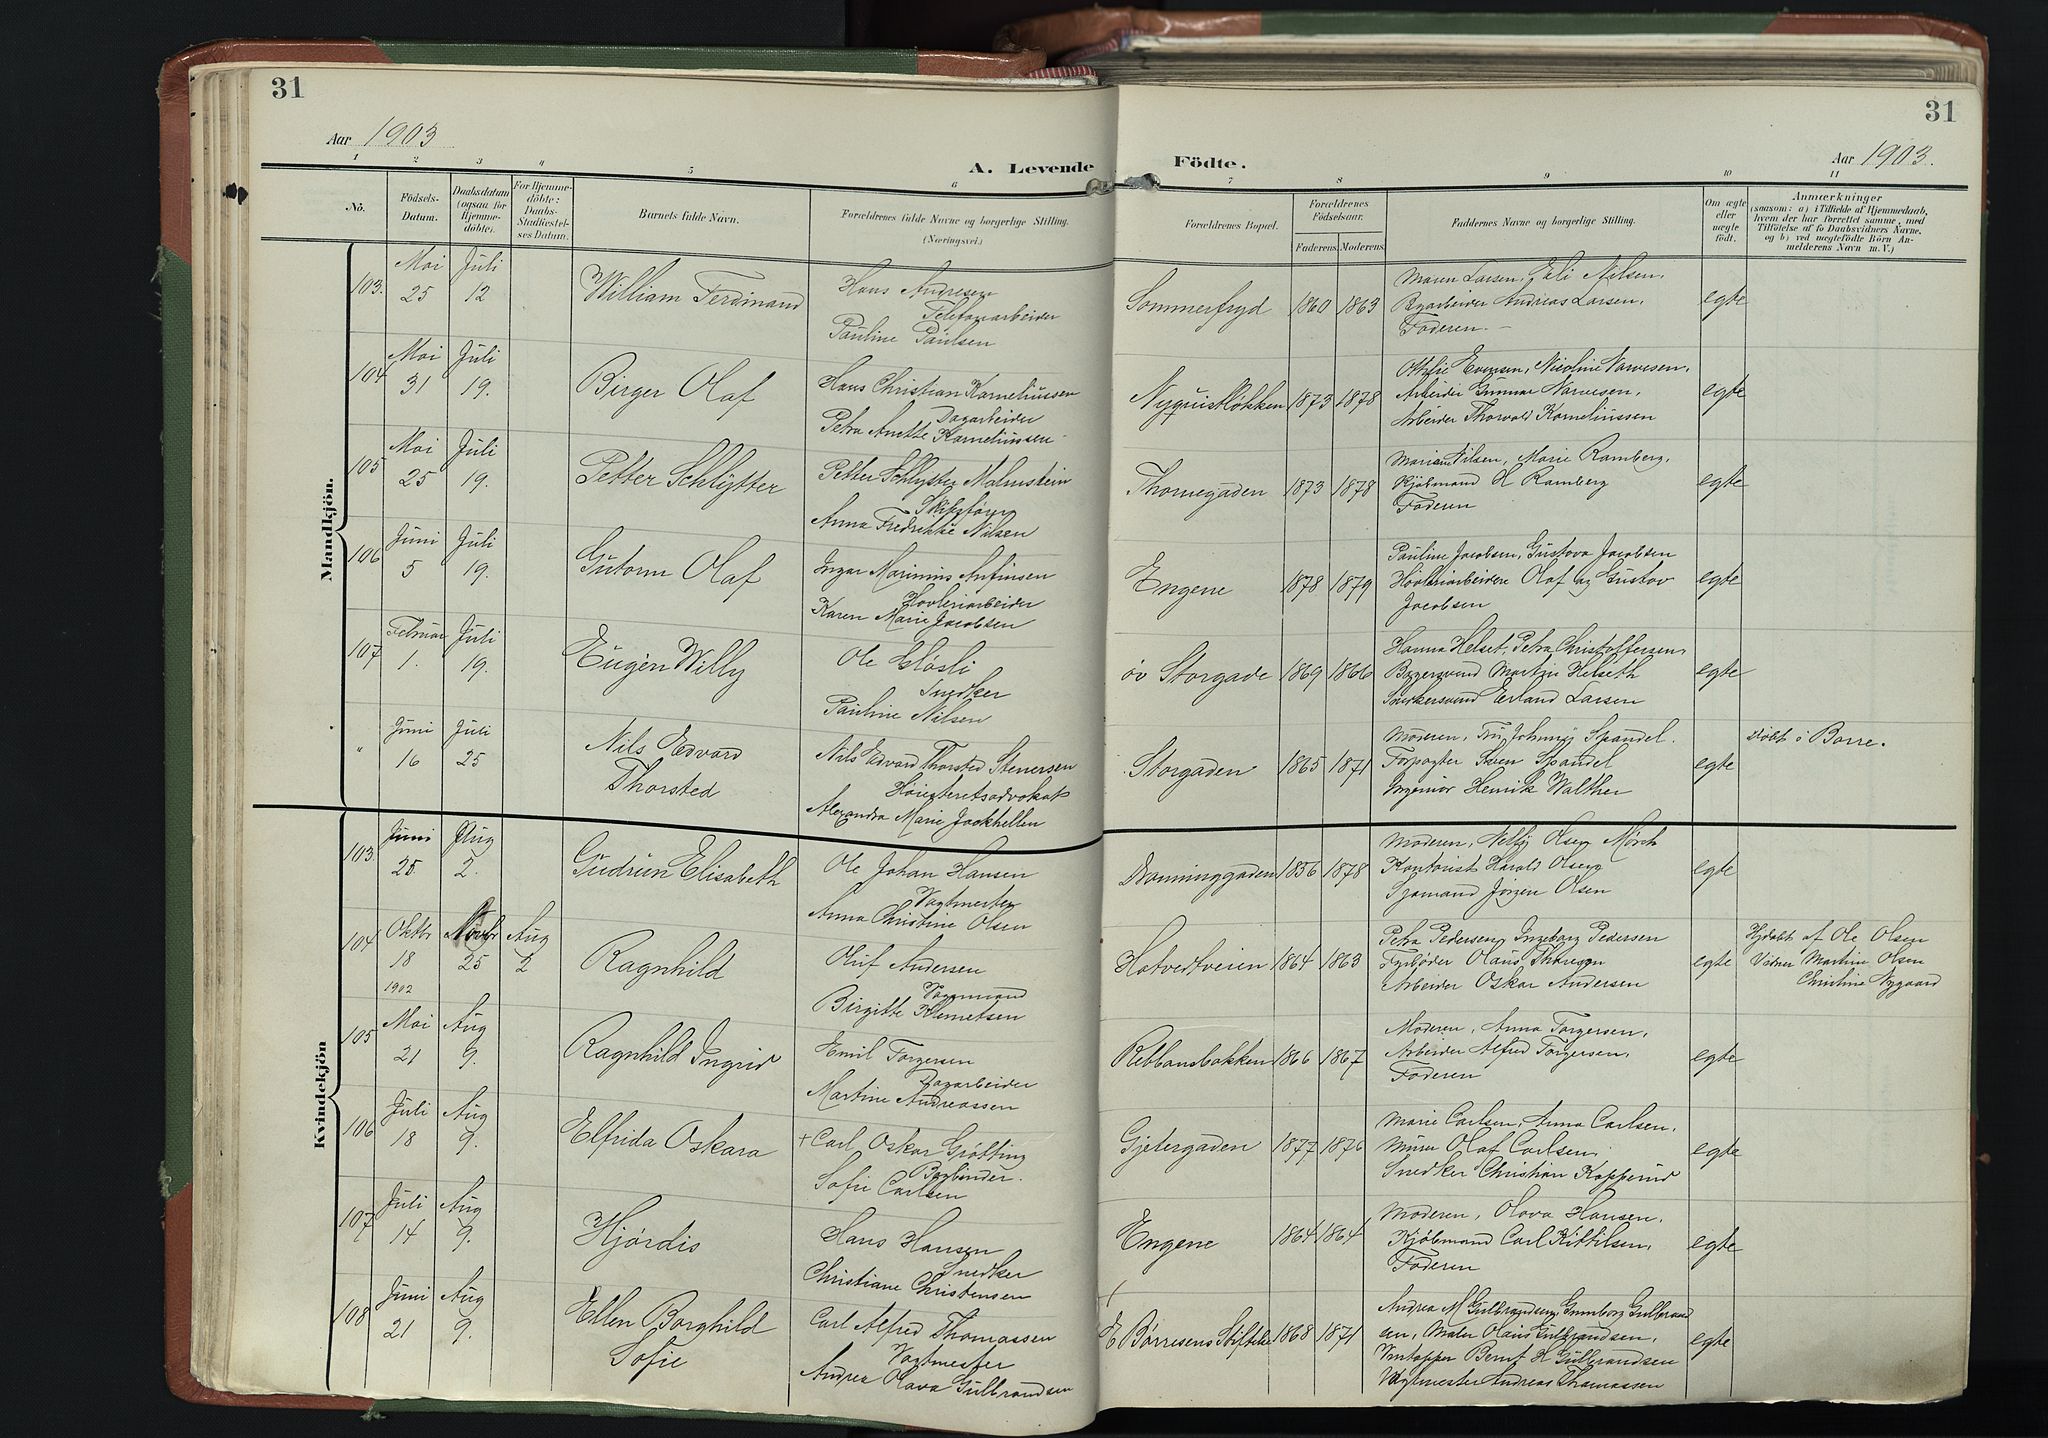 31
31
Aar 1903
Aar 1903.
A. Levende
Födte.
1 2 3 4 5 6 7 8 9 10 11
No.
Födsels-
Datum.
Daabsdatum
(ogsaa for
Hjemme-
döbte).
For Hjemme-
döbte:
Daabs-
Stadfæstel-
ses Datum.
Barnets fulde Navn.
Forældrenes fulde Navne og borgerlige Stilling.
(Næringsvei.)
Forældrenes Bopæl.
Forældrenes
Födselsaar.
Faderens. Moderens.
Faddernes Navne og borgerlige Stilling.
Om ægte
eller
uægte
födt.
Anmærkninger
(saasom: a) i Tilfælde af Hjemmedaab,
hvem der har forrettet samme, med
Tilföielse af to Daabsvidners Navne,
og b) ved uægtefödte Börn An-
melderens Navn m. V.)
Mandkjön.
103. Mai 25 Juli 12 William Ferdinand
Hans Andresen
Telefonarbeider
Pauline Paulsen
Sommerfryd 1860 1863
Maren Larsen, Nilsen.
Andreas Larsen.
Faderen.
egte
104 Mai 31 Juli 19. Birger Olaf
Hans Christian Korneliussen
Dagarbeider
Petra Anette Korneliussen
Nyquistløkken 1873 1878
Evensen, Nicoline Narvesen.
Arbeider Gunnar Narvesen,
Arbeider Thorvald Korneliussen
egte
105 Mai 25 Juli 19. Petter Schlytter
Petter Schlytter Malmstein
Skibsfører
Anna Fredrikke Nilsen
Thornegaden 1873 1878
Nilsen, Marie Ramberg.
Kjøbmand H Ramberg
Faderen
egte
106 Juni 5 Juli 19. Gutorm Olaf
Ingar Marinius Antinsen
Høvleriarbeider
Karen Marie Jacobsen
Engene 1878 1879
Pauline Jacobsen, Gustava Jacobsen
Høvleriarbeidere Olaf og Gustav
Jacobsen
egte
107 Februar 1. Juli 19. Eugen Willy
Ole
Snedker
Pauline Nilsen
øv Storgade 1869 1866
Hanna Helset, Petra Christoffersen,
Bagersvend Martin Helseth
Snekkersvend Erland Larsen
egte
" Juni 16 Juli 25 Nils Edvard
Thorsted
Nils Edvard Thorsted Stenersen
Høiesteretsadvokat
Alexandra Marie
Storgaden 1865 1871
Moderen, Fru Johnny Spandel.
Forpagter Sven Spandel
Ingeniør Henrik Walther
egte
døbt i Borre.
Kvindekjön
103. Juni 25. Aug 2. Gudrun Elisabeth
Ole Johan Hansen
Vagtmester
Anna Christine Olsen
Dronninggaden 1856 1878
Moderen, Nelly Olsen Mørch
Kontorist Harald Olsen
Sjømand Jørgen Olsen
egte
104 Oktbr 18 1902 Novbr 25 Aug 2 Ragnhild
Oluf Andersen
Vognmand
Birgitte Klemetsen
Hotvedtveien 1864 1863
Petra Pedersen, Ingeborg Pedersen
Fyrbøder Olaus Thoresen
Arbeider Oskar Andersen
egte
Hjdøbt af Ole Olsen
Vidner Martin Olsen
Christine Nygaard
105 Mai 21 Aug 9. Ragnhild Ingrid
Emil Torgersen
Dagarbeider
Martine Andreassen
Rebbansbakken 1866 1867
Moderen, Anna Torgersen,
Arbeider Alfred Torgersen,
Faderen
egte
106 Juli 18 Aug 9. Elfrida Oskara
+ Carl Oskar Grøtting
Bogbinder.
Sofie Carlsen
Gjetergaden 1877 1876
Marie Carlsen, Anna Carlsen.
Murer Olaf Carlsen
Snedker Christian Kopperud
egte
107 Juli 14 Aug 9. Hjørdis
Hans Hansen
Snedker
Christiane Christensen
Engene 1864 1864
Moderen, Olava Hansen.
Kjøbmand Carl Kittilsen,
Faderen
egte
108 Juni 21 Aug 9. Ellen Borghild
Sofie
Carl Alfred Thomassen
Vagtmester
Andrea Olava Gulbrandsen
E Børresens Stiftelse 1868 1871
Andrea M Gulbrandsen, Gunnborg Gulbrand
sen, Maler Olaus Gulbrandsen,
Vintapper Bernt H Gulbrandsen
Vagtmester Andreas Thomassen
egte